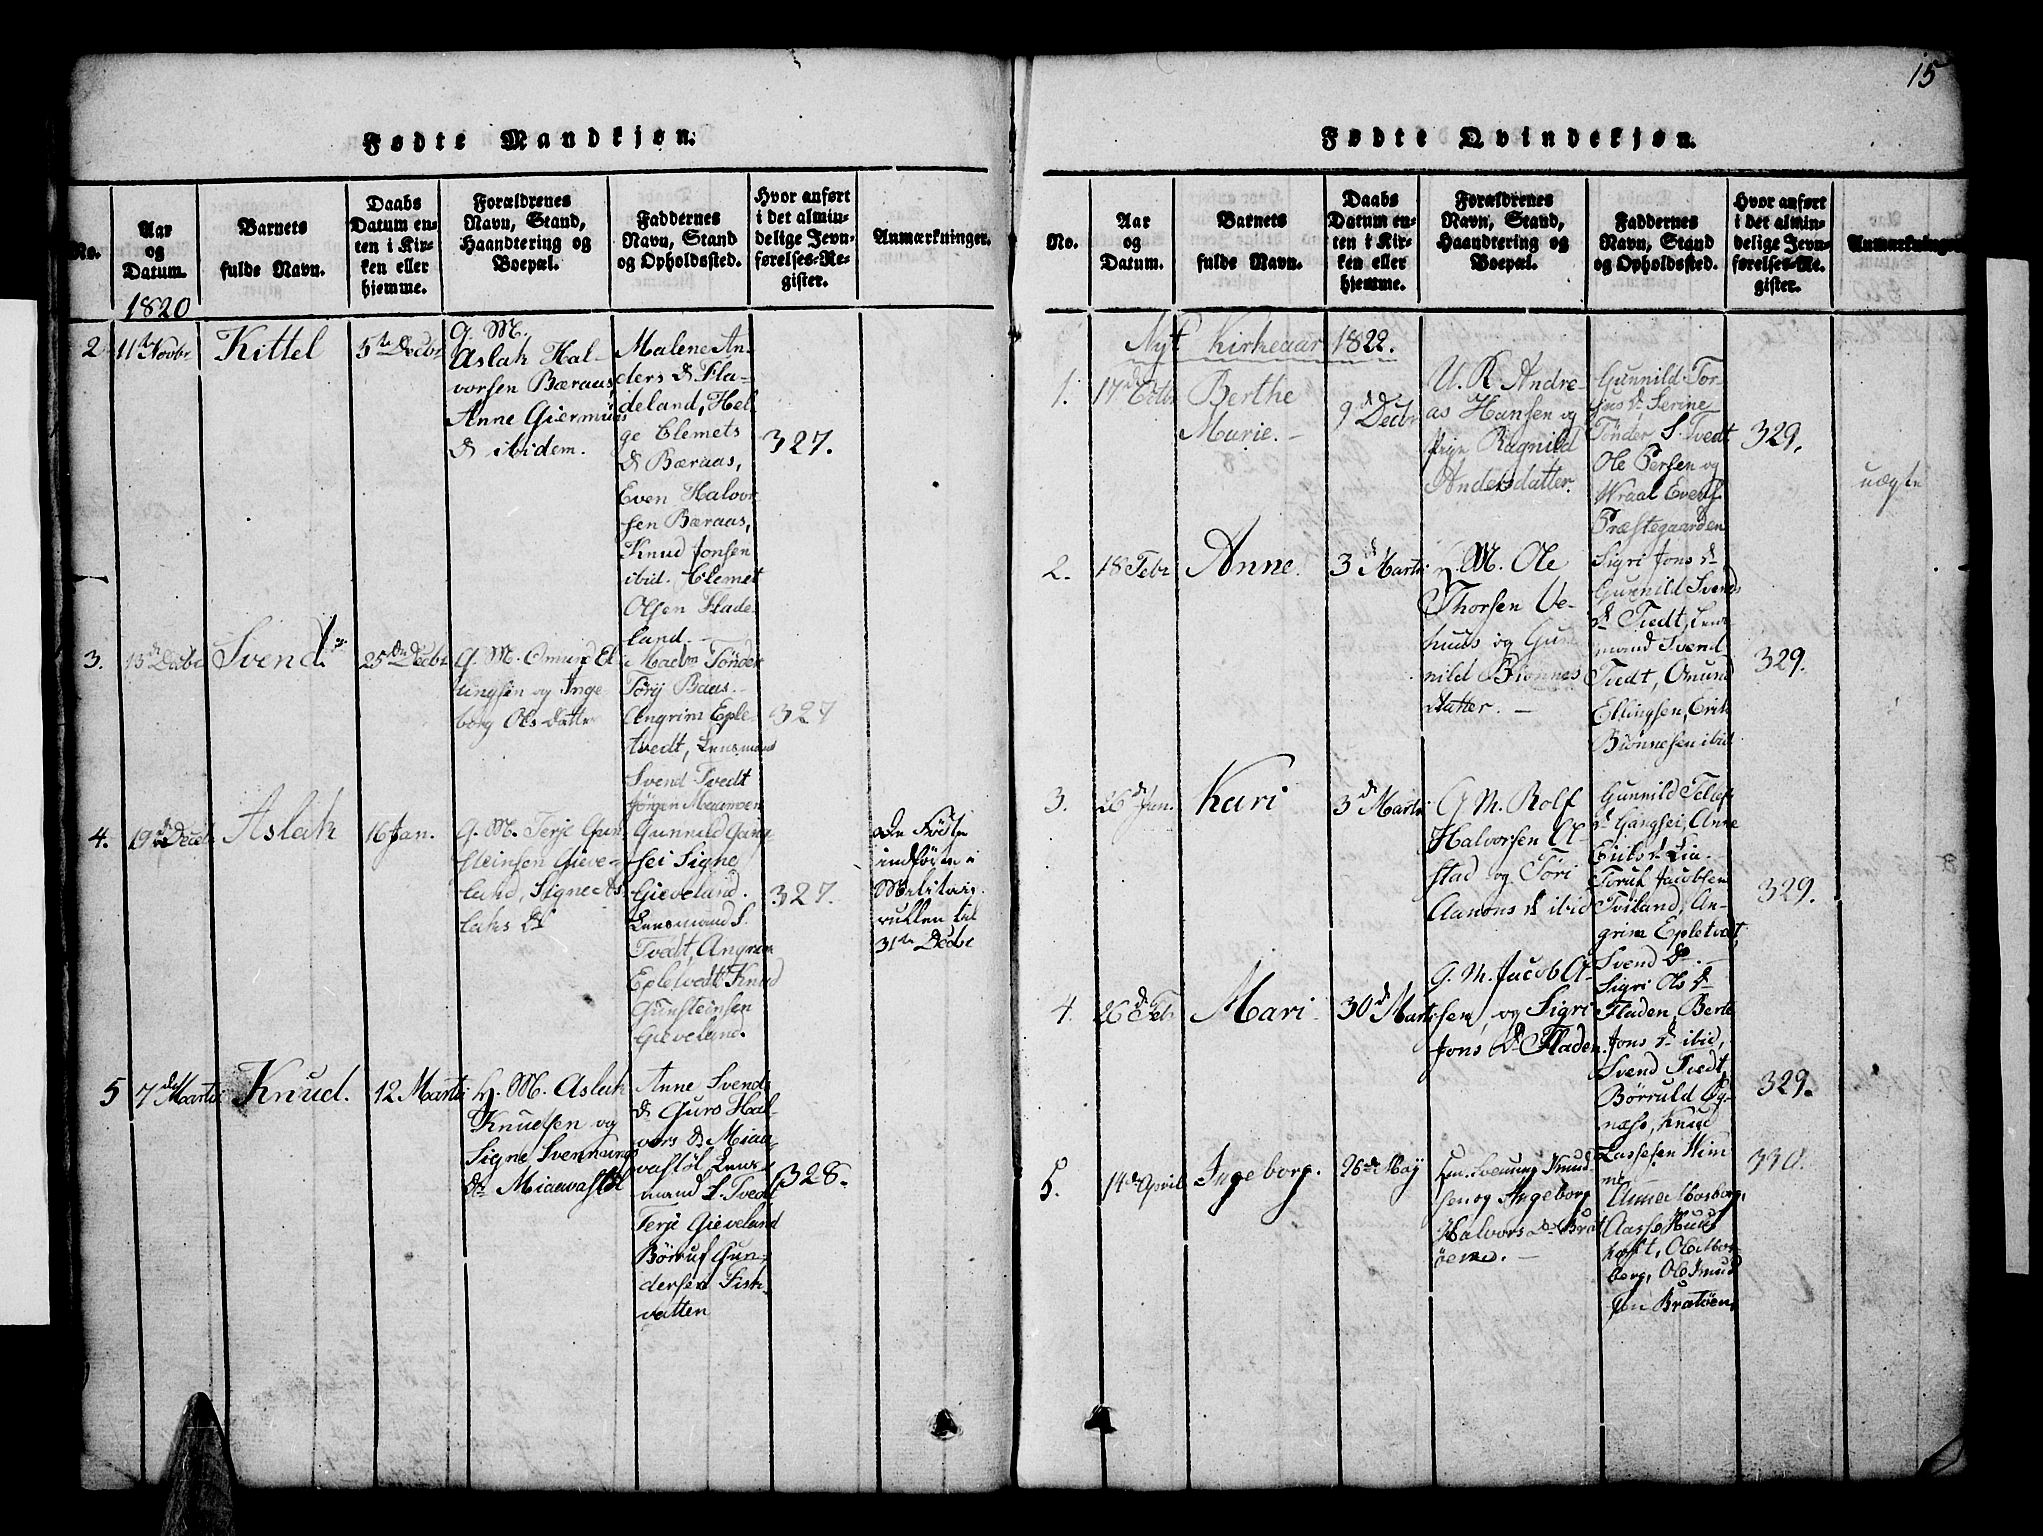 15
Fødte Mandkjøn.
No.
Aar
og
Datum.
Barnets
fulde Navn.
Daabs
Datum en-
ten i Kir-
ken eller
hjemme.
Forældrenes
Navn, Stand,
Haandtering og
Boepæl.
Faddernes
Navn, Stand
og Opholdssted.
Hvor anført
i det almin-
delige Jevn-
førelses-Re-
gister.
Anmærkninger.
1820
2
11te Novbr
Kittel
5te Decbr
G. M.
Aslak Hal-
vorsen Bæraas,
Anne Giermunds
D. ibidem.
Malene An-
ders D. Fla-
deland, Hel-
ge Clemets
D. Bæraas,
Even Halvor-
sen Bæraas,
Knud Jonsen
ibid. Clemet
Olsen Flade-
land.
327.
3.
15de Decbr
Svend
25de Decbr
G. M. Omund El-
lingsen og Inge-
borg Ols datter
Madm Tønder
Tørij Baas.
Angrim Eple-
tvedt, Lensmand
Svend Tvedt
Jørgen
327
4.
19de Decbr
Aslak
16 Jan.
G. M. Terje Gun-
steinsen Gieve-
land, Signe As-
laks D.
Gunnild Gang-
sei Signe
Gieveland.
Lensmand S.
Tvedt, Angrim
Epletvedt Knud
Gunsteinsen
Gieveland.
327.
De Fødte
indførte i
Militair-
rullen til
31te Decbr
5
7de Martii
Knud.
12 Martii
G. M. Aslak
Knudsen og
Signe Svennungs
D. Miaavastøl
Anne Svends
D. Guro Hal-
vors D. Miaa-
vastøl, Lens-
mand S. Tvedt
Terje Gieveland
Børruf Gun-
dersen Fisk-
vatten
328.
Fødte Qvindekjøn.
No.
Aar
og
Datum.
Barnets
fulde Navn.
Daabs
Datum en-
ten i Kir-
ken eller
hjemme.
Forældrenes
Navn, Stand,
Haandtering og
Boepæl.
Faddernes
Navn, Stand
og Opholdssted.
Hvor anført
i det almin-
delige Jevn-
førelses-Re-
gister.
Anmærkninger
Nyt Kirkeaar 1822.
1.
17de Octbr
Berthe
Marie.
9de Decbr
U. K. Andre-
as Hansen og
Pige Ragnild
Andersdatter.
Gunnild Tor-
Serine
Tønder S. Tvedt
Ole Persen og
Wraal Evens.
Præstegaarden
329.
uægte
2.
18 Febr
Anne.
3de Martii
G. M. Ole
Thorsen Ve-
huus og Gun-
nild Biønnes
datter.
Sigri Jons D.
Gunnild Svends
D. Tvedt, Lens-
mand Svend
Tvedt, Omund
Ellingsen, Erik
Biønnesen ibid
329.
3.
26de Jan.
Kari
3de Martii
G. M. Rolf
Halvorsen El-
stad og Tøri
Aanons D. ibid
Gunnild Tellef
D. Gangsei, Anne
Eriks D. Lia.
Toruf Jacobsen
Tviland, An-
grim Epletvedt,
Svend Do.
329.
4.
26de Feb
Mari
30de Marti
G. M. Jacob Ol-
sen, og Sigri
Jons D. Fladen.
Sigri Ols D.
Fladen, Berte
Jons D. ibid,
Svend Tvedt,
Børruld Og-
næss, Knud
Lassesen Him-
329.
5.
14de April
Ingeborg.
26de May
Svenung Knud-
sen og Ingeborg
Halvors D. Brat-
øene.
Anne Mosberg,
Aasse Huus-
toft, Ole Mos-
berg, Ole Knud-
sen Bratøen,
330.